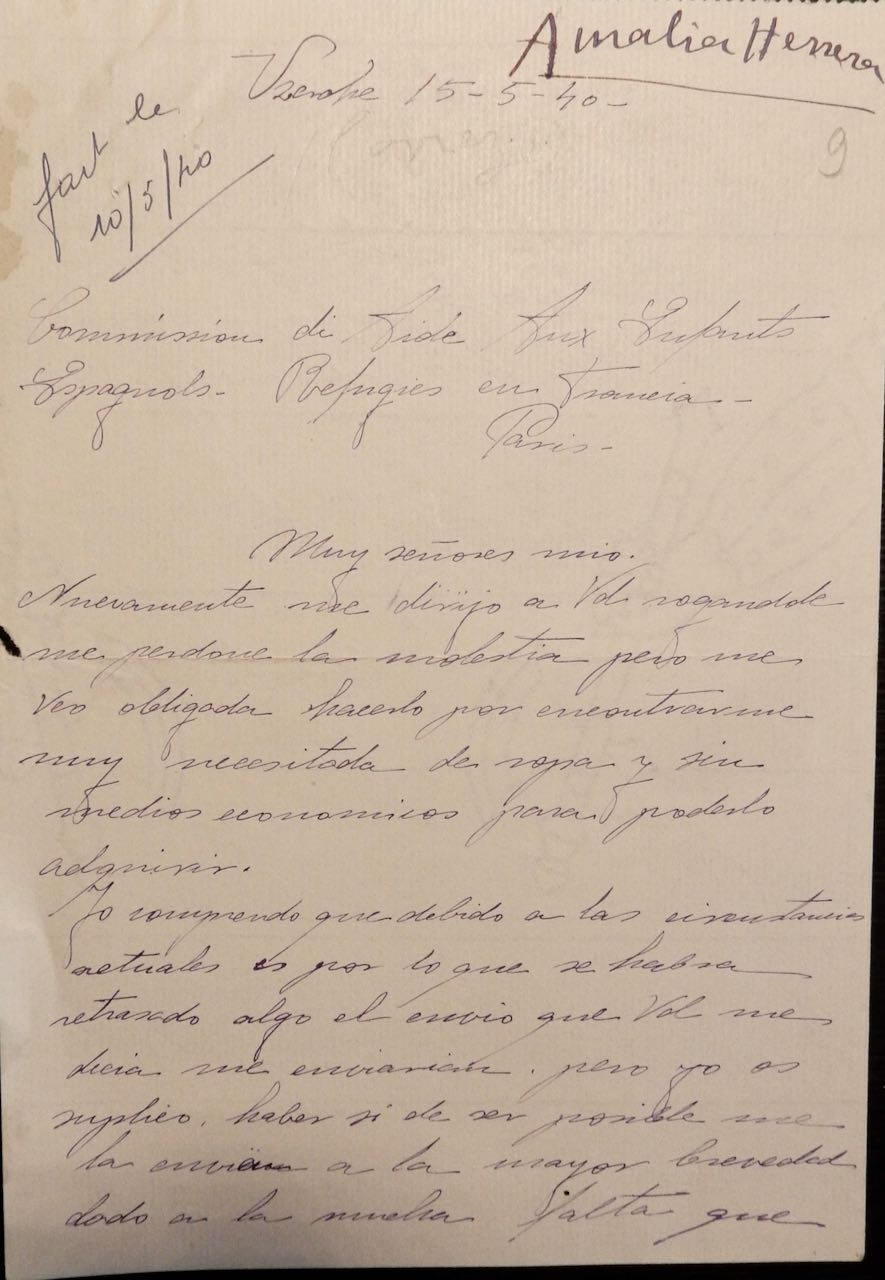 Amalia Herrera
Uzerche 15-5-40-
9
fait le
10/5/40
Commission di Aide Aux Enfants
Espagnols- Refugies en Francia-
Paris-
Muy señores mio.
Nuevamente me dirijo a Vd rogandole
me perdone la molestia pero me
veo obligada hacerlo por encontrarme
muy necesitada de ropa y sin
medios economicos para poderlo
adquirir.
Yo comprendo que debido a las circustancias
actuales es por lo que se habra
retrasado algo el envio que Vd me
decia me enviarian. pero yo os
suplico. haber si de ser posible me
la envien a la mayor brevedad
dado a la mucha falta que